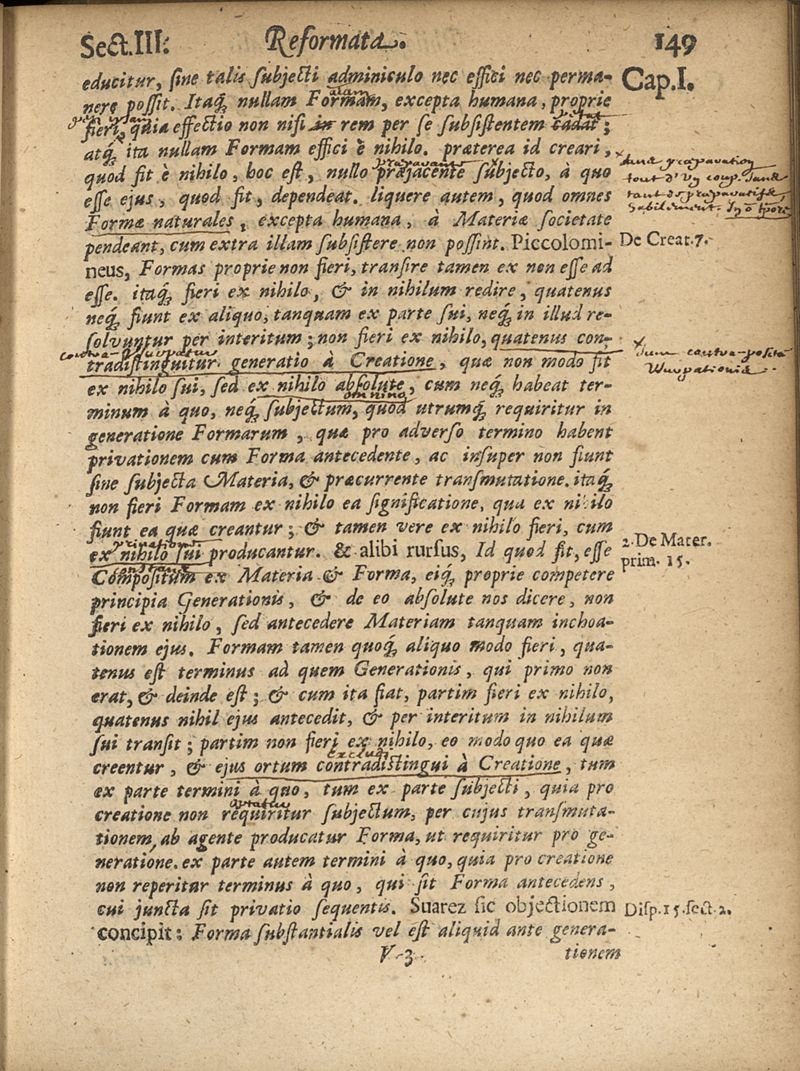 Sect.III. Reformata. 149
Cap.I.
educitur, sine talis subjecti adminiculo nec effici nec perma-
nere possit. Itaq; nullam Formam, excepta humana, proprie
fieri, quia effectio non nisi in rem per se subsistentem cadat;
atq; ita nullam Formam effici è nihilo. præterea id creari,
quod fit è nihilo, hoc est, nullo præjacente subjecto, à quo
esse ejus, quod fit, dependeat. liquere autem, quod omnes
Formæ naturales, excepta humana, à Materiæ societate
pendeant, cum extra illam subsistere non possint. Piccolomi-
De Creat.7.
neus, Formas proprie non fieri, transire tamen ex non esse ad
esse. itaq; fieri ex nihilo, & in nihilum redire, quatenus
neq; fiunt ex aliquo, tanquam ex parte sui, neq; in illud re-
solvuntur per interitum; non fieri ex nihilo, quatenus con-
tradistinguitur generatio à Creatione, quæ non modo fit
ex nihilo sui, sed ex nihilo absolute, cum neq; habeat ter-
omnino
minum à quo, neq; subjectum, quod utrumq; requiritur in
generatione Formarum, quæ pro adverso termino habent
privationem cum Forma antecedente, ac insuper non fiunt
sine subjecta Materia, & præcurrente transmutatione. itaq;
non fieri Formam ex nihilo ea significatione, qua ex nihilo
fiunt ea quæ creantur; & tamen vere ex nihilo fieri, cum
ex nihilo sui producantur. & alibi rursus, Id quod fit, esse
2. De Mater.
prim. 15.
Compositum ex Materia & Forma, eiq; proprie competere
principia Generationis, & de eo absolute nos dicere, non
fieri ex nihilo, sed antecedere Materiam tanquam inchoa-
tionem ejus. Formam tamen quoq; aliquo modo fieri, qua-
tenus est terminus ad quem Generationis, qui primo non
erat, & deinde est; & cum ita fiat, partim fieri ex nihilo,
quatenus nihil ejus antecedit, & per interitum in nihilum
sui transit; partim non fieri ex nihilo, eo modo quo ea quæ
creentur, & ejus ortum contradistingui à Creatione, tum
ex parte termini à quo, tum ex parte subjecti, quia pro
creatione non requiritur subjectum, per cujus transmuta-
tionem ab agente producatur Forma, ut requiritur pro ge-
neratione. ex parte autem termini à quo, quia pro creatione
non reperitur terminus à quo, qui sit Forma antecedens,
cui juncta sit privatio sequentis. Suarez sic objectionem
Disp.15.sect.2.
concipit: Forma substantialis vel est aliquid ante genera-
V 3 tionem